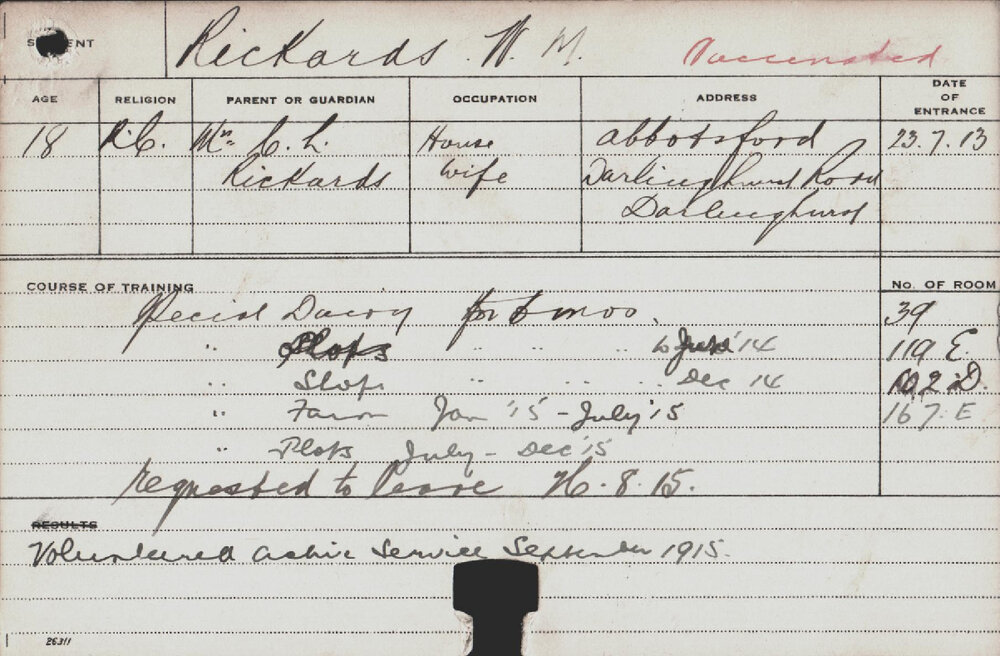 STUDENT Rickards. W. M. Vaccinated
AGE RELIGION PARENT OR GUARDIAN OCCUPATION ADDRESS DATE OF ENTRANCE
18 R.C. Mrs C. L. House Abbotsford 23.7.13
Rickards Wife Darlinghurst Road
Darlinghurst
COURSE OF TRAINING No. OF ROOM
Special Dairy for 6 mos. 39
" Plots " " " to June '14 119 E.
" Shops " " " Dec 14 102 D.
" Farm Jan '15 - July '15 167. E
" Plots July - Dec '15
requested to leave 8. 15.
RESULTS
Volunteered active Service September 1915.
26311